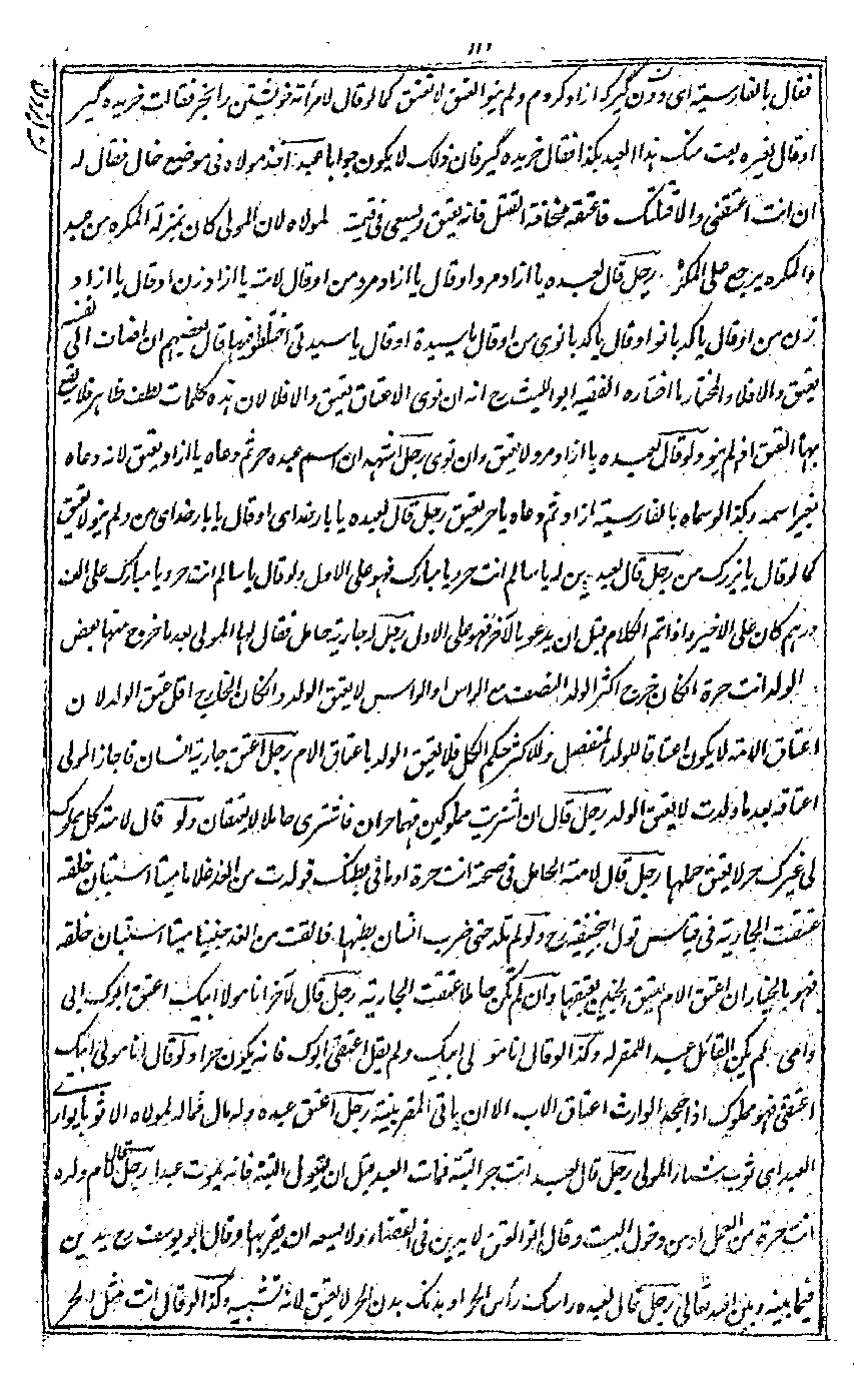 ١١١
فقال بالفارسية اى دون گيرکه ازاد کردم ولم ينو العتق لا تعتق کما لو قال لامرأته خويشتن را بخر فقالت خريده گير
او قال لغيره بعت منک هذا العبد بکذا فقال خريده گير فان ذلک لا يکون جوابا عبد اخذ مولاه فى موضع خال فقال له
ان انت اعتقنى والا قتلتک فاعتقه مخافة القتل فانه يعتق ويسعى فى قيمته لمولاه لان المولى کان بمنزلة المکره من عبد
والمکره يرجع على المکرِه رجل قال لعبده يا ازاد مرد او قال يا ازاد مرد من او قال لامته يا ازاد زن او قال يا ازاد
زن من او قال يا کدبانو او قال يا کدبانوى من او قال يا سيدة او قال يا سيدتى اختلفوا فيها قال بعضهم ان اضاف الى نفسه
يعتق والا فلا والمختار ما اختاره الفقيه ابو الليث رح انه ان نوى الاعتاق يعتق والا فلا لان هذه کلمات لطف ظاهر فلا يقع
بها العتق اذ لم ينو ولو قال لعبده يا ازاد مرد لا يعتق وان نوى رجل اشهد ان اسم عبده حر ثم دعاه يا ازاد يعتق لانه دعاه
بغير اسمه وکذا لو سماه بالفارسية ازاد ثم دعاه يا حر يعتق رجل قال لعبده يا بار خداى او قال يا بار خداى من ولم ينو لا يعتق
کما لو قال يا بزرگ من رجل قال لعبدين له يا سالم انت حر ويا مبارک فهو على الاول ولو قال يا سالم انت حر ويا مبارک على الف
درهم کان على الاخير واذا تم الکلام قبل ان يدعو بالآخر فهو على الاول رجل له جارية حامل فقال لها المولى بعد ما خرج منها بعض
الولد انت حرة ان کان خرج اکثر الولد النصف مع الراس او الراس لا يعتق الولد وان کان الخارج اقل عتق الولد لان
اعتاق الامة لا يکون اعتاقا للولد المنفصل وللاکثر حکم الکل فلا يعتق الولد باعتاق الام رجل اعتق جارية انسان فاجاز المولى
اعتاقه بعد ما ولدت لا يعتق الولد رجل قال ان اشتريت مملوکين فهما حران فاشترى حاملا لا يعتقان ولو قال لامته کل مملوک
لى غيرک حر لا يعتق حملها رجل قال لامته الحامل فى صحته انت حرة او ما فى بطنک فولدت من الغد غلاما ميتا استبان خلقه
عتقت الجارية فى قياس قول ابيحنيفة رح ولو لم تلد حتى ضرب انسان بطنها فالقت من الغد جنينا ميتا استبان خلقه
فهو بالخيار ان اعتق الام يعتق الجنين بعتقها وان لم تکن حاملا عتقت الجارية رجل قال لآخر انا مولا ابيک اعتق ابوک ابى
وامى لم يکن القائل عبد اللمقر له وکذا لو قال انا مولى ابيک ولم يقل اعتقنى ابوک فانه يکون حرا ولو قال انا مولى ابيک
اعتقنى فهو مملوک اذا جحد الوارث اعتاق الاب الا ان ياتى المقر ببينة رجل اعتق عبده وله مال فماله لمولاه الا ثوبا يوارى
العبد اى ثوب شاء المولى رجل قال لعبده انت حر البتة فمات العبد قبل ان يقول البتة فانه يموت عبدا رجل قال لام ولده
انت حرة من العمل او من دخول البيت وقال انو العتق لا يدين فى القضاء ولا يسعه ان يقربها وقال ابو يوسف رح يدين
فيما بينه وبين الله تعالى رجل قال لعبده راسک رأس الحر او بدنک بدن الحر لا يعتق لانه تشبيه وکذا لو قال انت مثل الحر